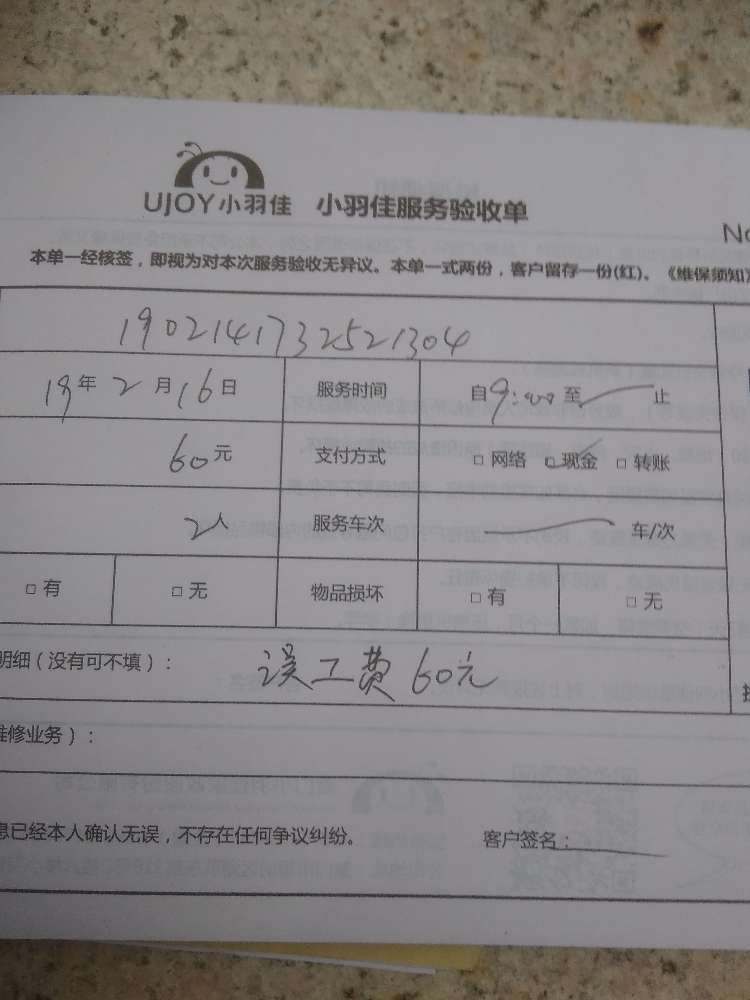 UJOY小羽佳 小羽佳服务验收单
No
本单一经核签，即视为对本次服务验收无异议。本单一式两份，客户留存一份(红)。《维保须知》
1902141732521304
19年2月16日 服务时间 自9:00至 止
60元 支付方式 □ 网络 □ 现金 □ 转账
2人 服务车次 车/次
□ 有 □ 无 物品损坏 □ 有 □ 无
明细（没有可不填）： 误工费60元
维修业务）：
息已经本人确认无误，不存在任何争议纠纷。 客户签名：